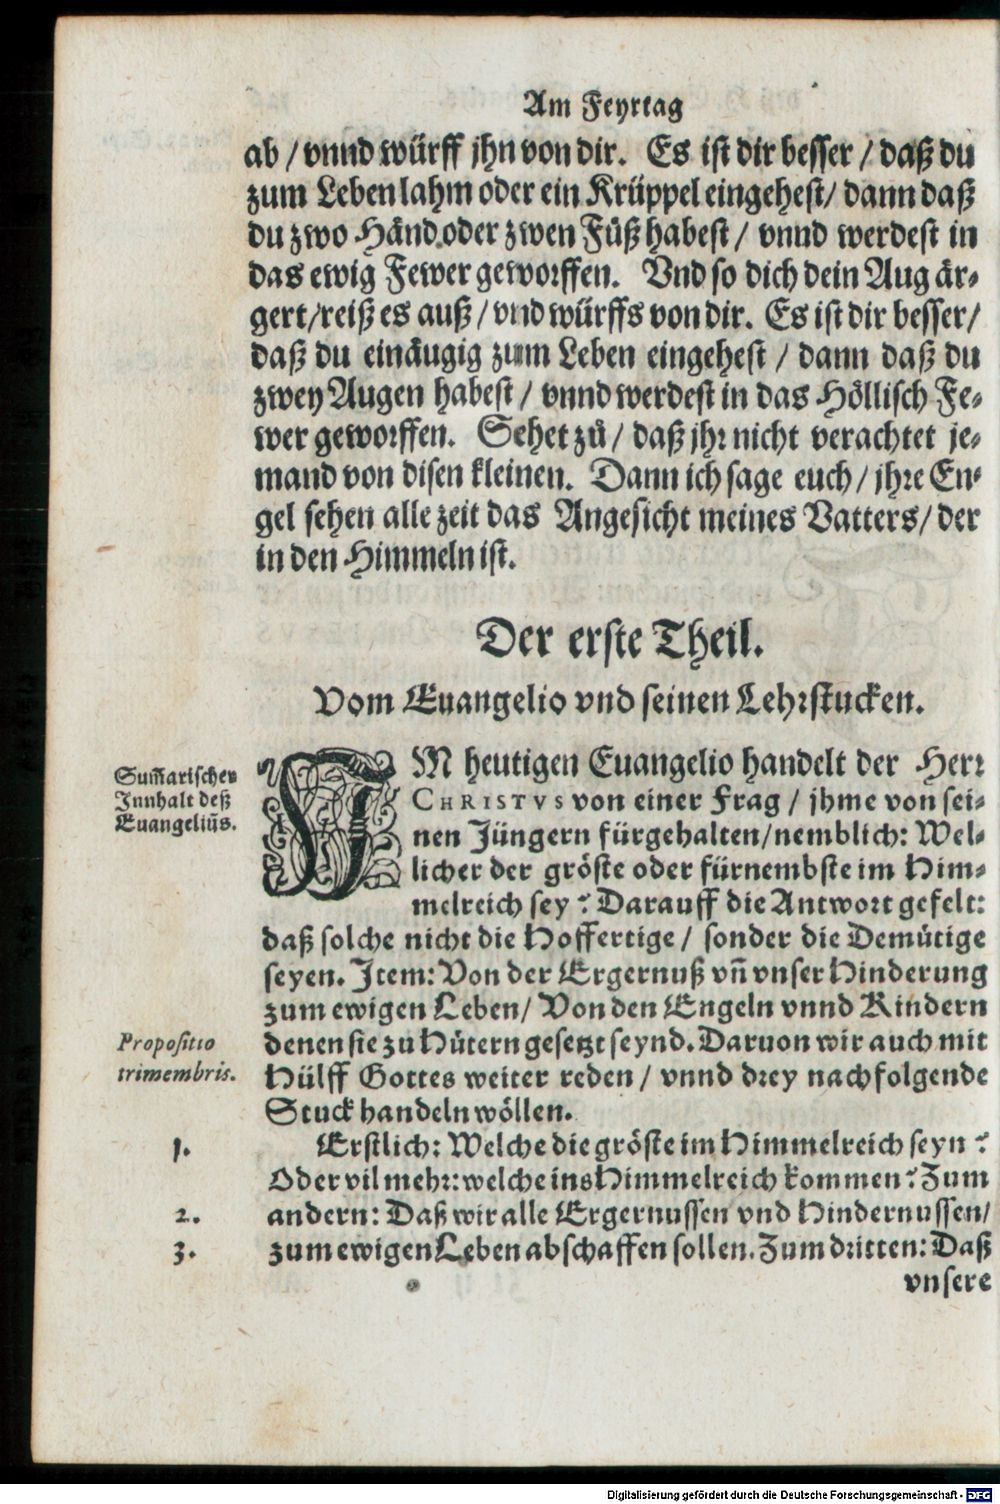 Am Feyrtag
ab / vnnd würff jhn von dir. Es ist dir besser / daß du
zum Leben lahm oder ein Krüppel eingehest / dann daß
du zwo Händ oder zwen Füß habest / vnnd werdest in
das ewig Fewer geworffen. Vnd so dich dein Aug är-
gert / reiß es auß / vnd würffs von dir. Es ist dir besser /
daß du einäugig zum Leben eingehest / dann daß du
zwey Augen habest / vnnd werdest in das Höllisch Fe-
wer geworffen. Sehet zů / daß jhr nicht verachtet je-
mand von disen kleinen. Dann ich sage euch / jhre En-
gel sehen alle zeit das Angesicht meines Vatters / der
in den Himmeln ist.
Der erste Theil.
Vom Euangelio vnd seinen Lehrstucken.
Sum̃arischer
Innhalt deß
Euangeliũs.
IM heutigen Euangelio handelt der Herr
CHRISTVS von einer Frag / jhme von sei-
nen Jüngern fürgehalten / nemblich: Wel-
licher der gröste oder fürnembste im Him-
melreich sey? Darauff die Antwort gefelt:
daß solche nicht die Hoffertige / sonder die Demütige
seyen. Item: Von der Ergernuß vñ vnser Hinderung
zum ewigen Leben / Von den Engeln vnnd Kindern
Propositio
trimembris.
denen sie zu Hütern gesetzt seynd. Daruon wir auch mit
Hülff Gottes weiter reden / vnnd drey nachfolgende
Stuck handeln wöllen.
1. Erstlich: Welche die gröste im Himmelreich seyn?
Oder vil mehr: welche ins Himmelreich kommen? Zum
2. andern: Daß wir alle Ergernussen vnd Hindernussen /
3. zum ewigen Leben abschaffen sollen. Zum dritten: Daß
vnsere
Digitalisierung gefördert durch die Deutsche Forschungsgemeinschaft - DFG